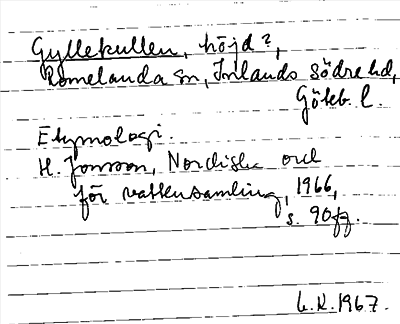 Gyllekullen, höjd?,
Romelanda sn, Inlands Södre hd,
Göteb. l.
Etymologi.
H. Jonsson, Nordiska ord
för vattensamling, 1966,
s. 90 fg.
L.R. 1967.